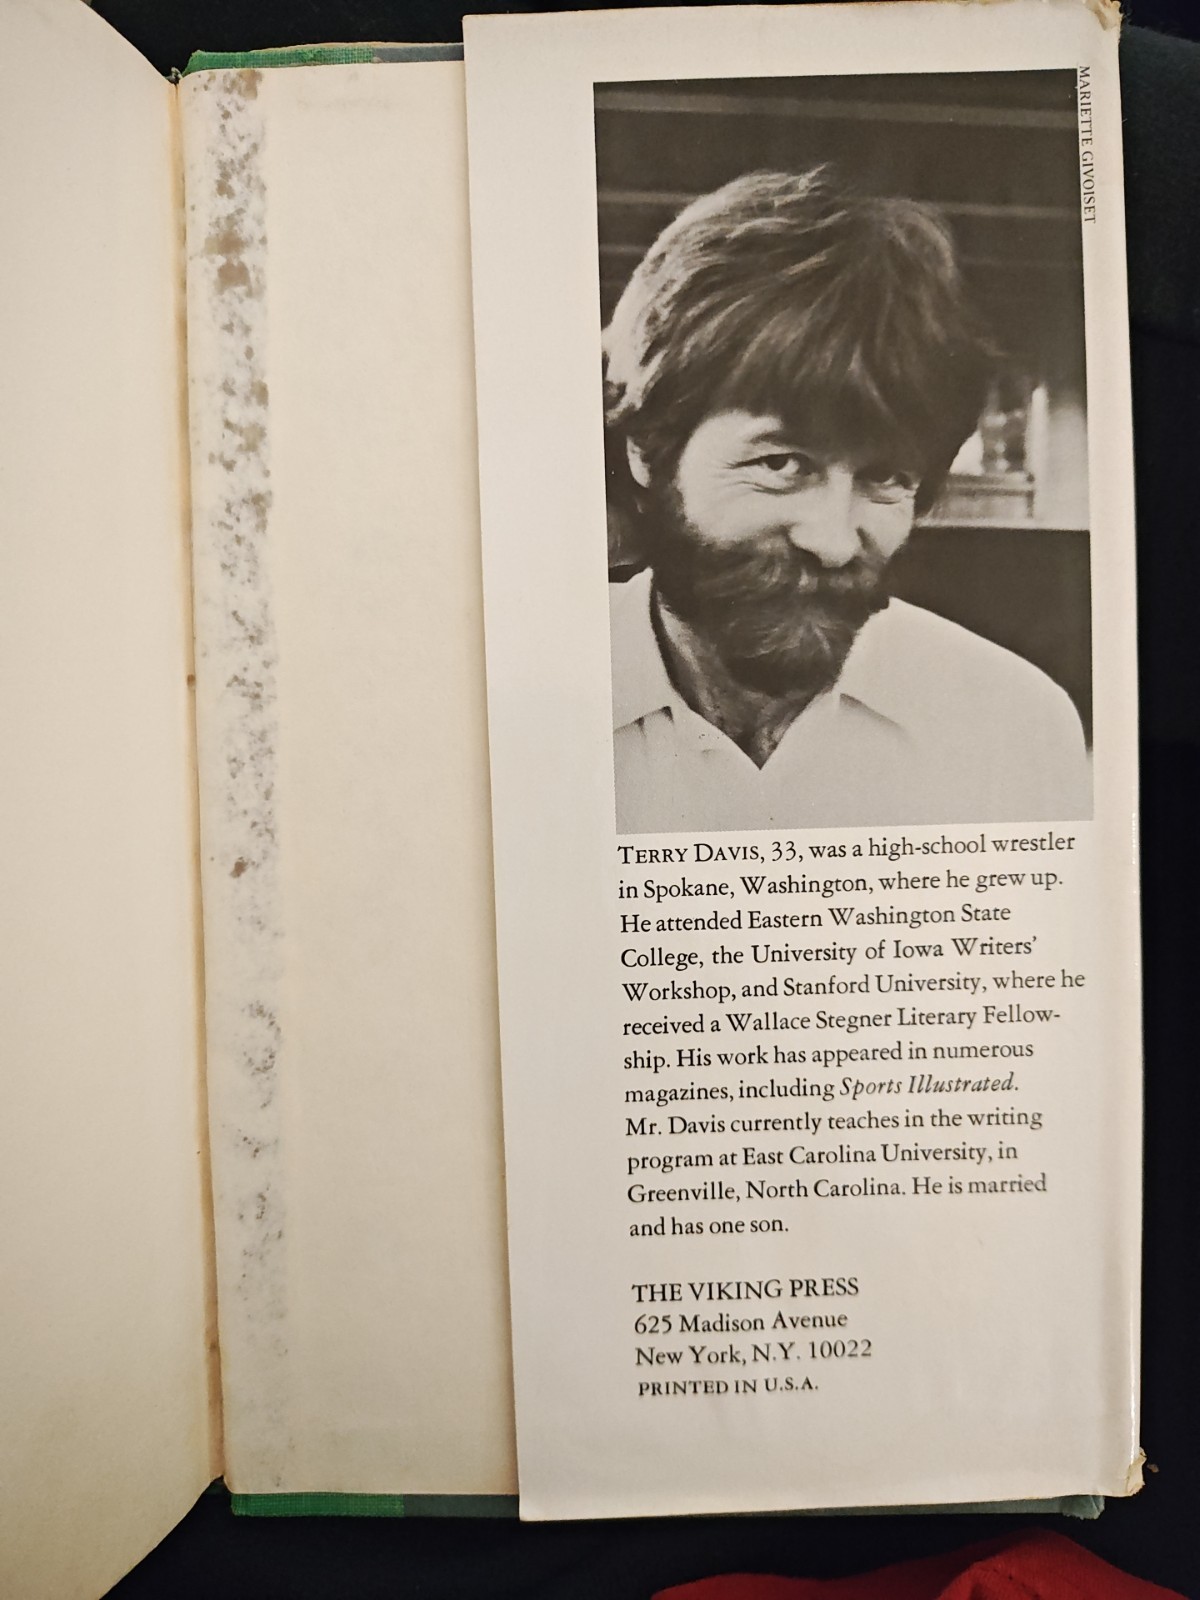 MARIETTE GIVOISET
TERRY DAVIS, 33, was a high-school wrestler
in Spokane, Washington, where he grew up.
He attended Eastern Washington State
College, the University of Iowa Writers'
Workshop, and Stanford University, where he
received a Wallace Stegner Literary Fellow-
ship. His work has appeared in numerous
magazines, including Sports Illustrated.
Mr. Davis currently teaches in the writing
program at East Carolina University, in
Greenville, North Carolina. He is married
and has one son.
THE VIKING PRESS
625 Madison Avenue
New York, N.Y. 10022
PRINTED IN U.S.A.